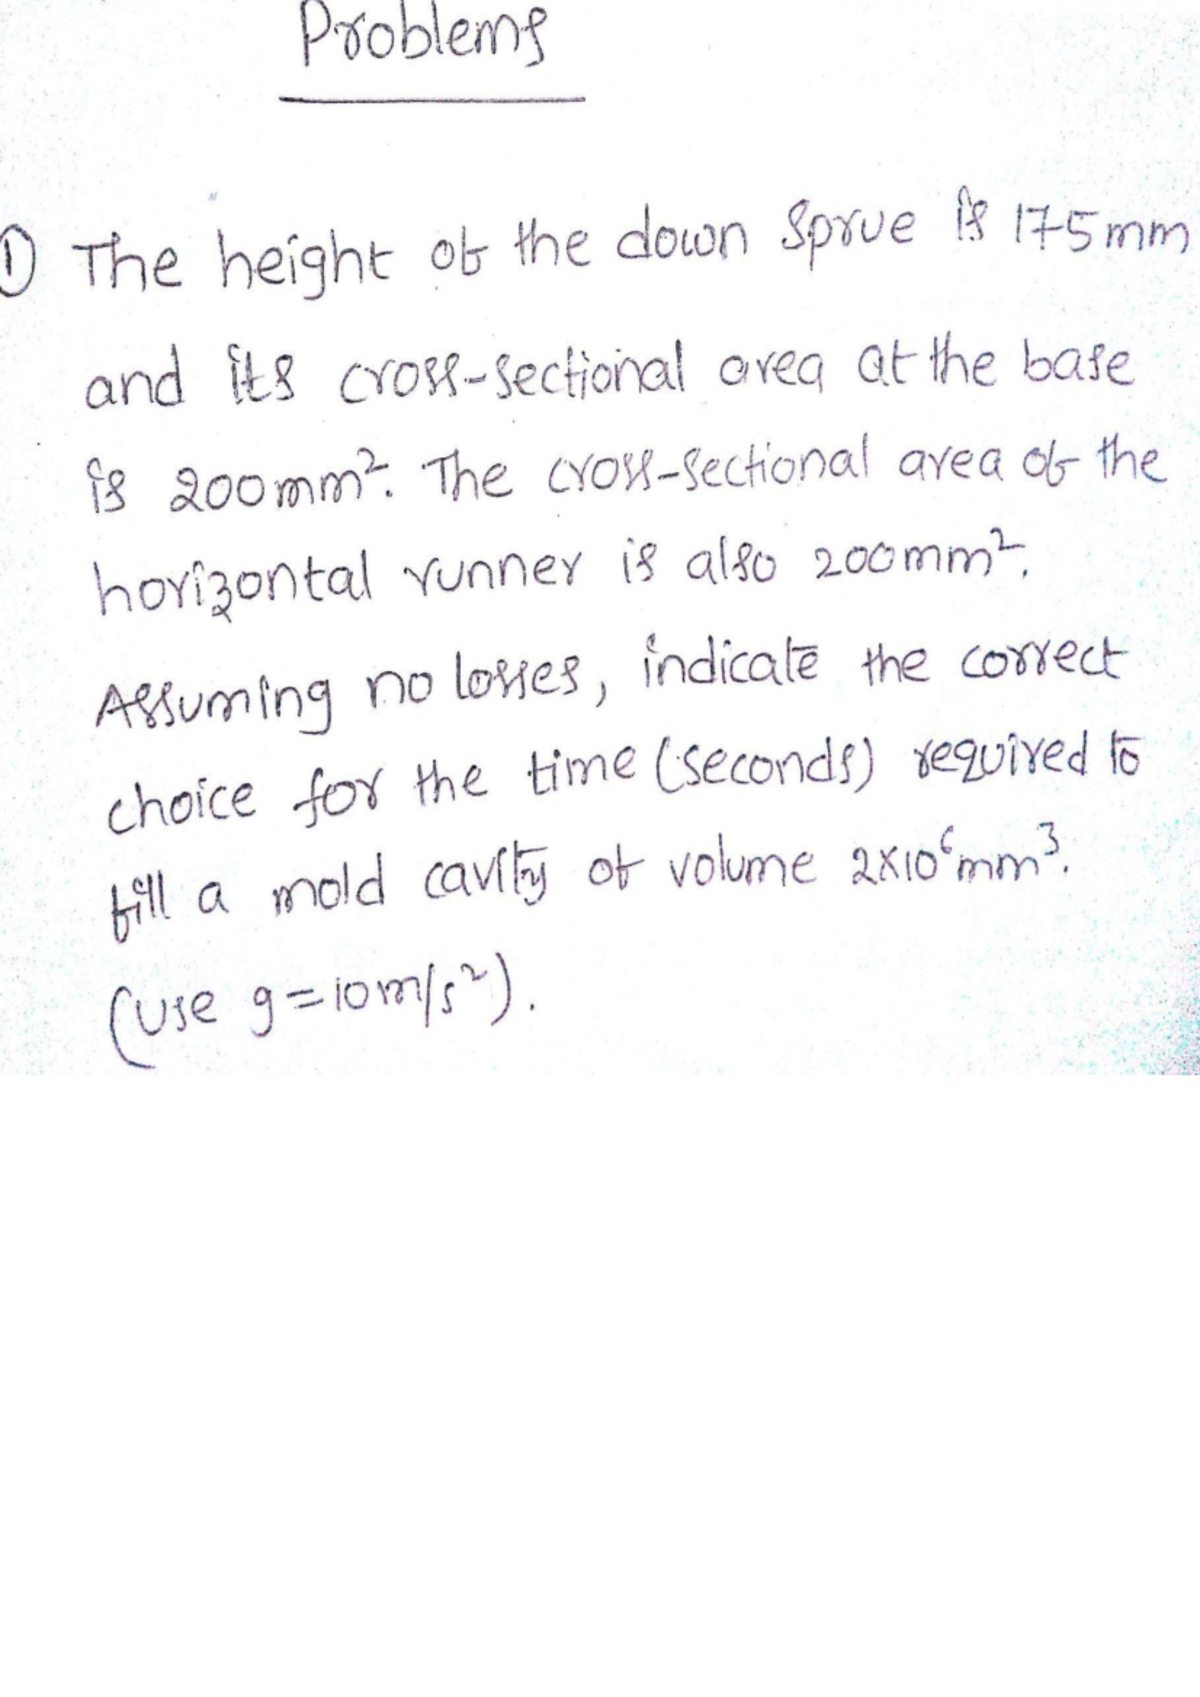 Problems
① The height of the down sprue is 175mm
and its cross-sectional area at the base
is 200mm². The cross-sectional area of the
horizontal runner is also 200mm².
Assuming no losses, indicate the correct
choice for the time (seconds) required to
fill a mold cavity of volume 2x10⁶mm³.
(Use g=10m/s²).